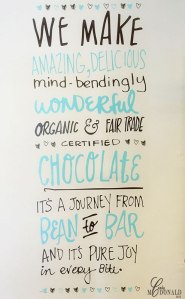 WE MAKE
AMAZING, DELICIOUS
mind-bendingly
WONDERFUL
ORGANIC & FAIR TRADE
CERTIFIED
CHOCOLATE
IT'S A JOURNEY FROM
BEAN to BAR
AND IT'S PURE JOY
in every bite.
MCDONALD